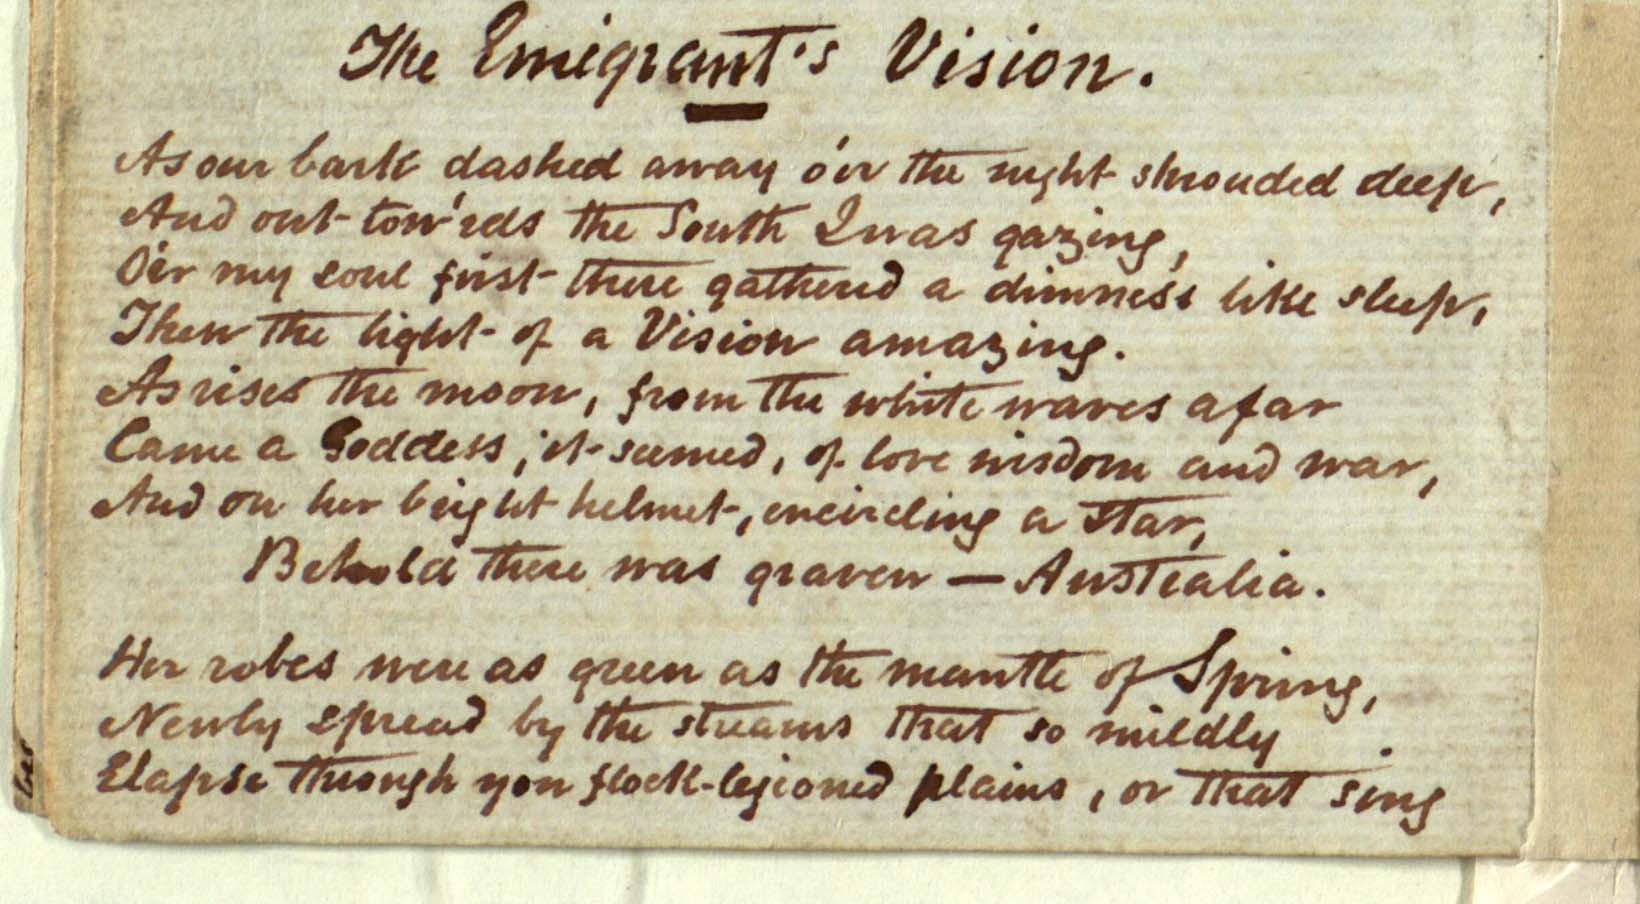 The Emigrant's Vision.
As our bark dashed away o'er the night shrouded deep,
And out tow'rds the South I was gazing,
O'er my soul first there gathered a dimness like sleep,
Then the light of a Vision amazing.
As rises the moon, from the white waves afar
Came a Goddess, it seemed, of love wisdom and war,
And on her bright helmet, encircling a star,
Behold there was graven — Australia.
Her robes were as green as the mantle of Spring,
Newly spread by the streams that so mildly
Elapse through yon flock-legioned plains, or that sing